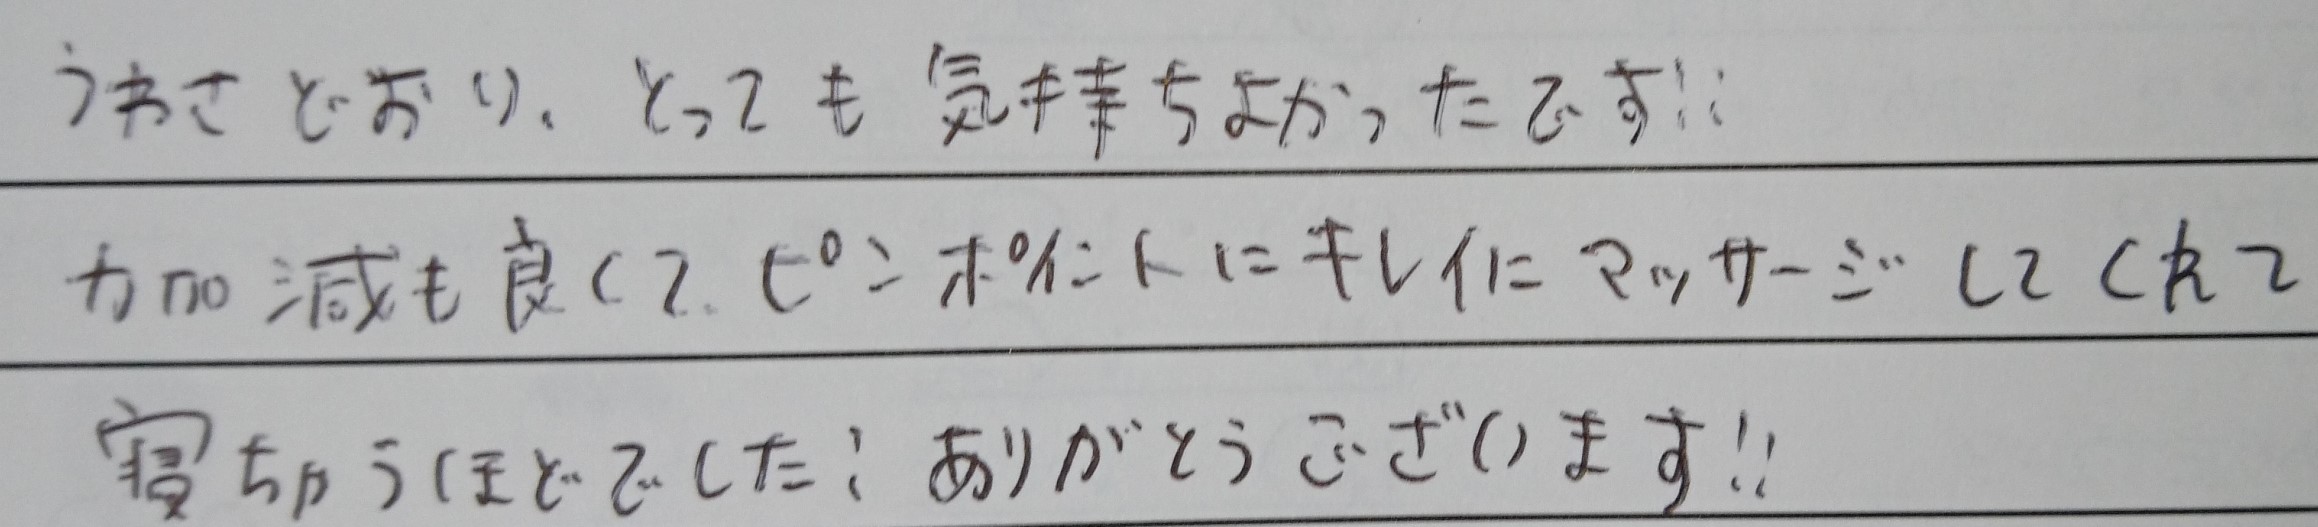 うわさどおり、とっても気持ちよかったです!!
力加減も良くて、ピンポイントにキレイにマッサージしてくれて
寝ちゃうほどでした! ありがとうございます!!